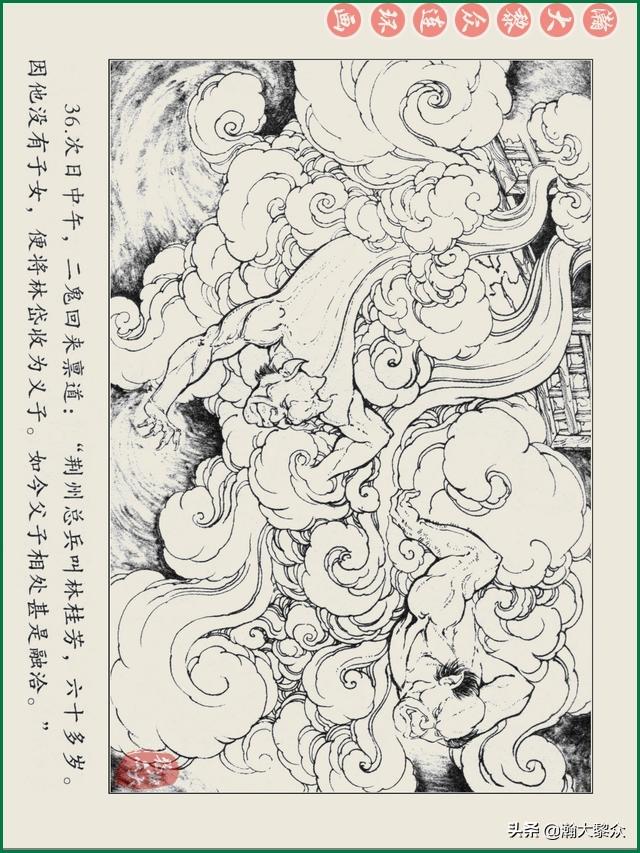 瀚大黎众连环画
36.次日中午，二鬼回来禀道：“荆州总兵叫林桂芳，六十多岁。
因他没有子女，便将林岱收为义子。如今父子相处甚是融洽。”
头条 @瀚大黎众